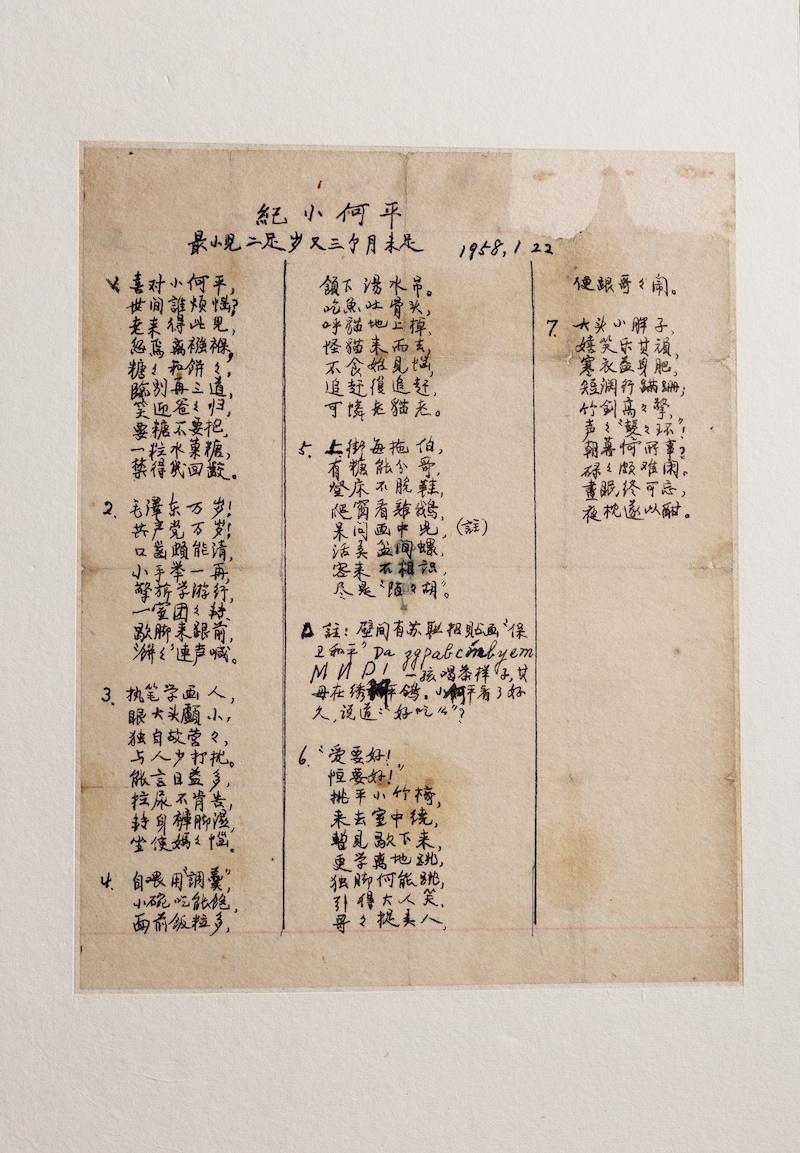 紀小何平
最小兒二足岁又三个月未足 1958,1 22
1. 喜对小何平,
世间誰煩惱?
老来得此兒,
忽焉离襁褓,
糖々和餅々,
臨别再三道,
笑迎爸々归,
要糖不要抱,
一粒水菓糖,
禁得幾回齩。
2. 毛澤东万岁!
共产党万岁!
口齿頗能清,
小手举一再,
擎旂学游行,
一室团々転,
歇脚来跟前,
“餅々”連声喊。
3. 执笔学画人,
眼大头顱小,
独自故营々,
与人少打扰。
能言日益多,
拉尿不肯告,
転身褲脚濕,
坐使媽々惱。
4. 自喂用“調羹”,
小碗吃能飽,
面前飯粒多,
頷下湯水吊。
吃魚吐骨头,
呼貓地上掉,
怪貓来而去,
不食始見惱,
追赶復追赶,
可憐老貓老。
5. 上街每拖伯,
有糖能分哥,
登床不脱鞋,
爬窗看雞鵝,
呆问画中兒,(註)
活弄盆间螺,
客来不相識,
尽是“陌々胡”。
註:壁间有苏联招貼画“保
卫和平” Да здравствует
МИР! 一孩喝茶样子,其
母在绣和平鴿。小何平看了好
久,说道:“好吃々”?
6. “爱要好!
恒要好!”
挑平小竹椅,
来去室中绕,
暫見歇下来,
更学离地跳,
独脚何能跳,
引得大人笑。
哥々捉弄人,
便跟哥々闹。
7. 大头小胖子,
嬉笑乐其頑,
寒衣益身肥,
短濶行蹒跚;
竹剑高々擎,
声々“嫛々环”!
朝暮何所事?
碌々頗难闲。
晝眠终可忘,
夜枕遂以酣。